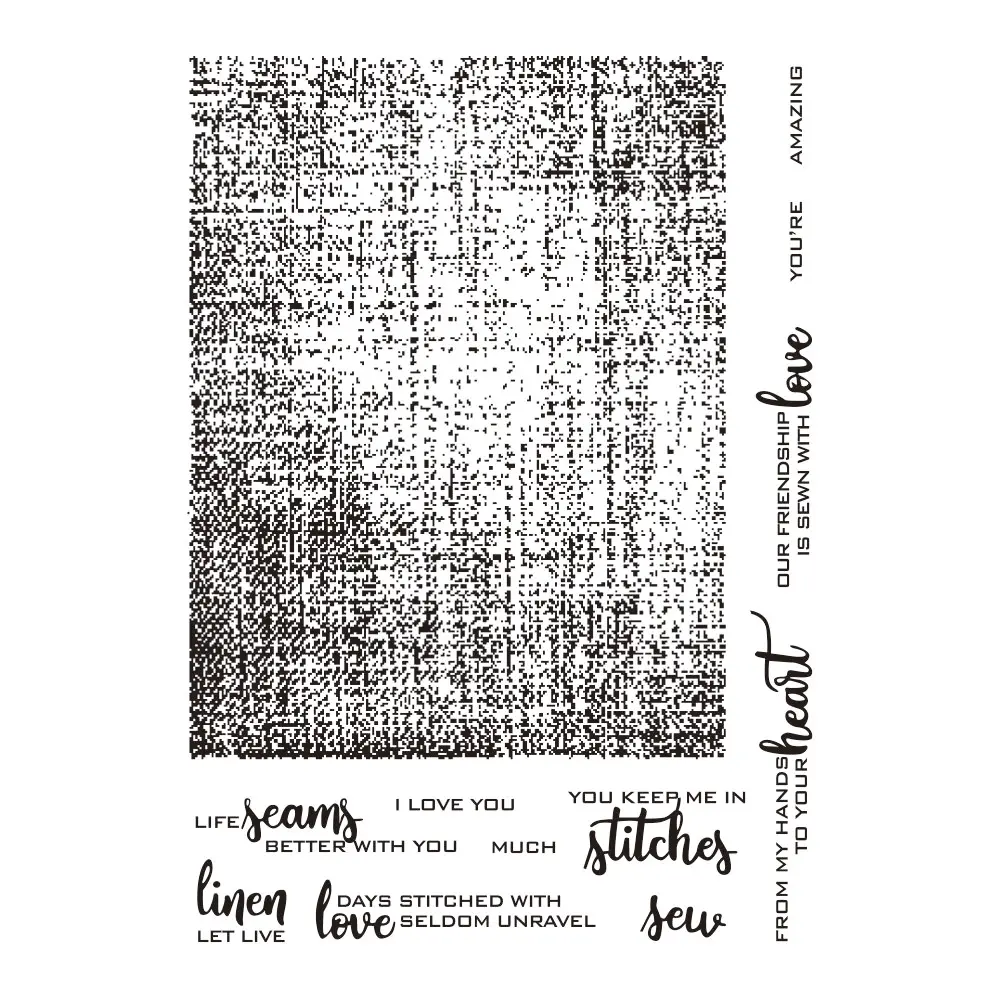 AMAZING
YOU'RE
OUR FRIENDSHIP
IS SEWN WITH love
FROM MY HANDS
TO YOUR heart
LIFE seams
BETTER WITH YOU
I LOVE YOU
MUCH
YOU KEEP ME IN
stitches
linen
LET LIVE
DAYS STITCHED WITH
love SELDOM UNRAVEL
sew